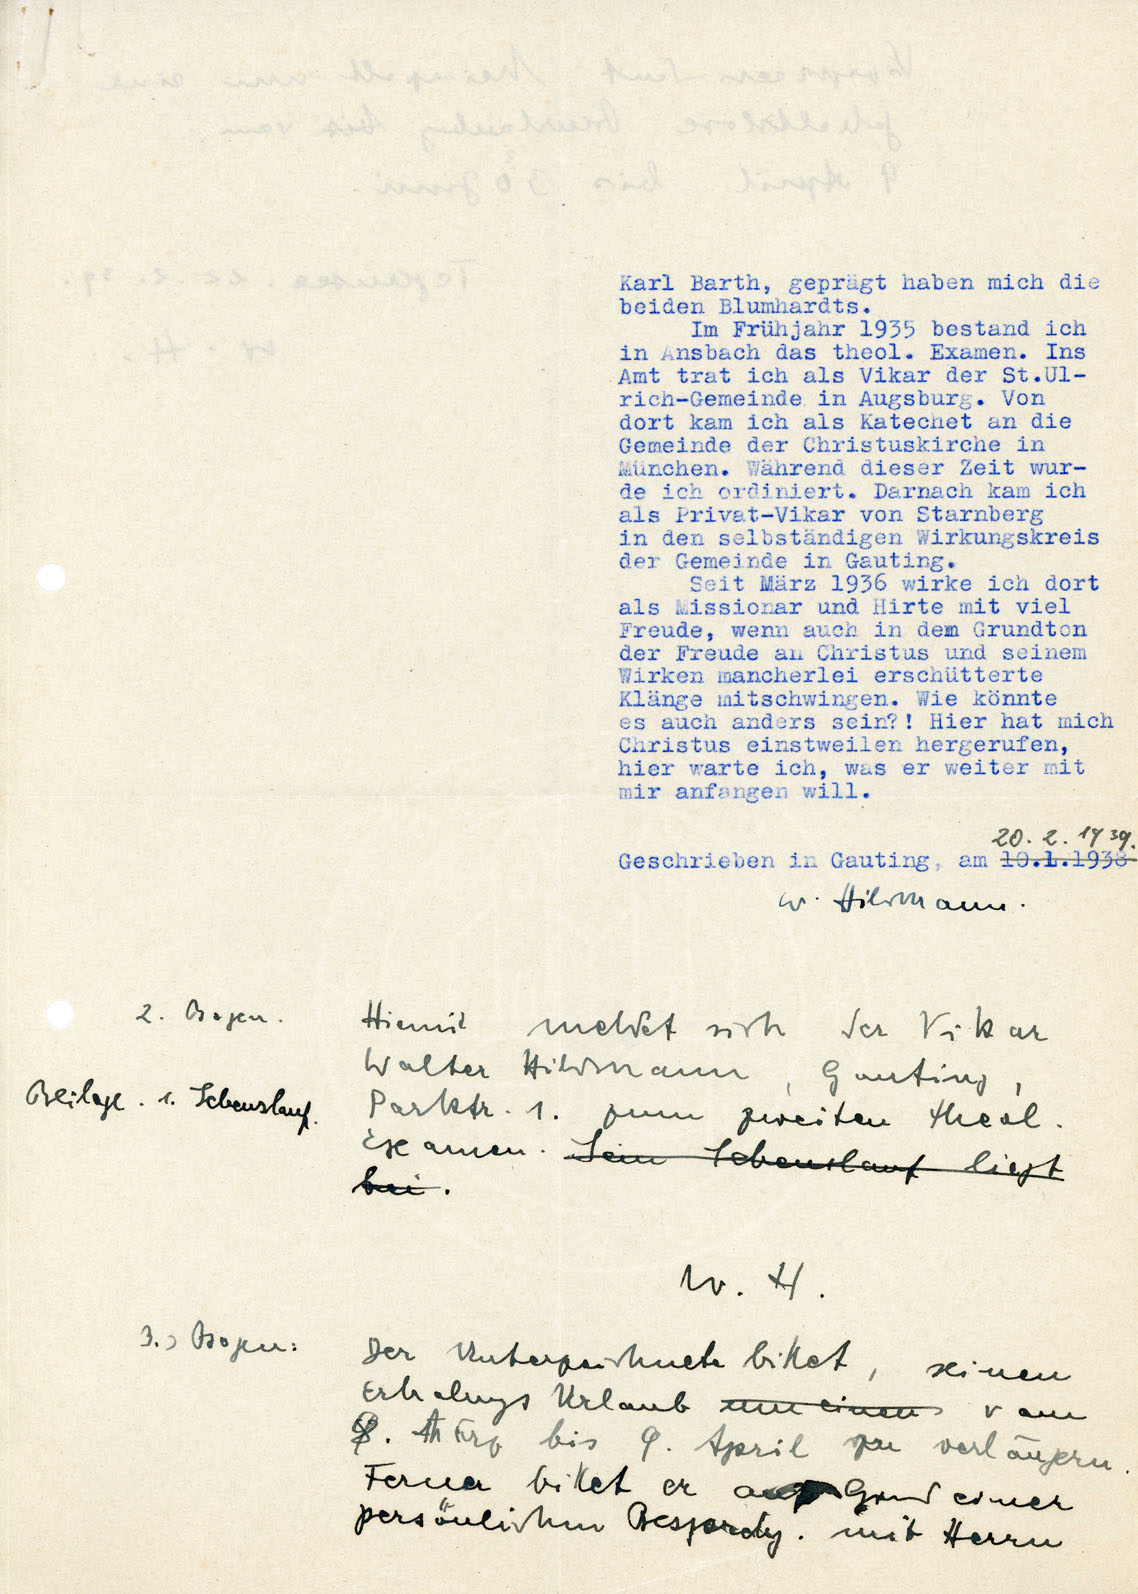 Karl Barth, geprägt haben mich die
beiden Blumhardts.
Im Frühjahr 1935 bestand ich
in Ansbach das theol. Examen. Ins
Amt trat ich als Vikar der St.Ul-
rich-Gemeinde in Augsburg. Von
dort kam ich als Katechet an die
Gemeinde der Christuskirche in
München. Während dieser Zeit wur-
de ich ordiniert. Darnach kam ich
als Privat-Vikar von Starnberg
in den selbständigen Wirkungskreis
der Gemeinde in Gauting.
Seit März 1936 wirke ich dort
als Missionar und Hirte mit viel
Freude, wenn auch in dem Grundton
der Freude an Christus und seinem
Wirken mancherlei erschütterte
Klänge mitschwingen. Wie könnte
es auch anders sein?! Hier hat mich
Christus einstweilen hergerufen,
hier warte ich, was er weiter mit
mir anfangen will.
20. 2. 1939.
Geschrieben in Gauting, am 10.1.1938
W. Hildmann.
2. Bogen.
Hiemit meldet sich der Vikar
Walter Hildmann, Gauting,
Beilage. 1. Lebenslauf.
Parkstr. 1. zum zweiten theol.
Examen. Sein Lebenslauf liegt
bei.
W. H.
3.) Bogen:
Der Unterzeichnete bittet, seinen
Erholungs Urlaub um einen vom
8. März bis 9. April zu verlängern.
Ferner bittet er auf Grund einer
persönlichen Besprechg. mit Herrn